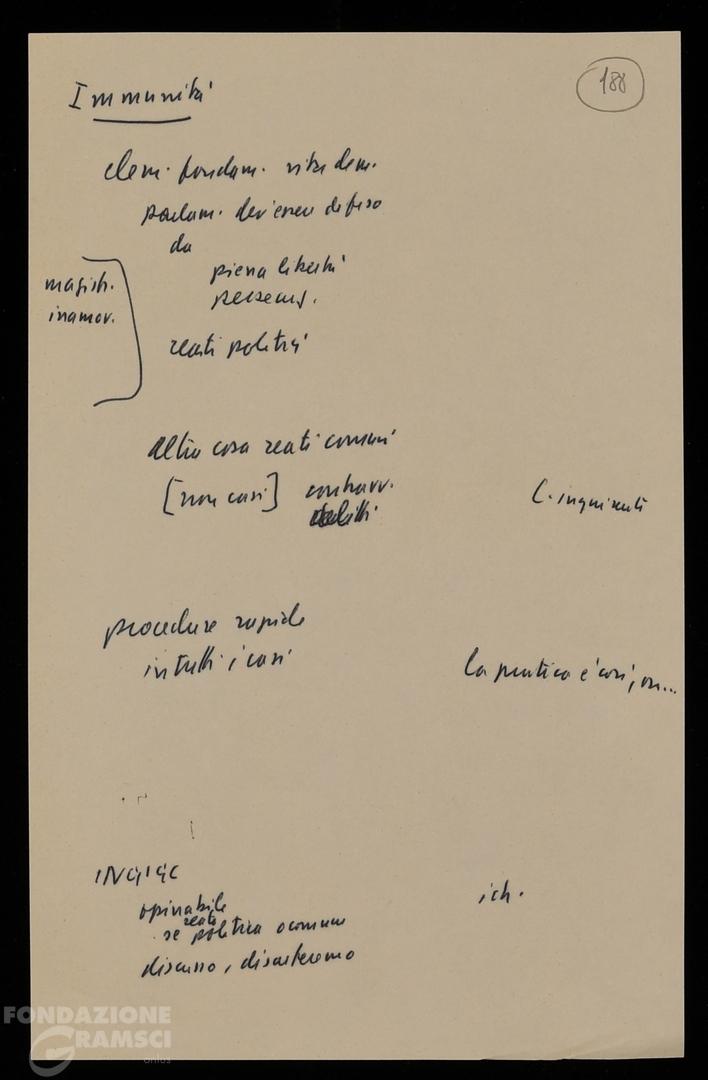 188
Immunità
elem. fondam. vita dem.
parlam. dev'essere difeso
da
piena libertà
persecuz.
magistr.
inamov.
reati politici
altra cosa reati comuni
[non casi] contravv.
delitti
C. inquirenti
procedure rapide
in tutti i casi
la pratica è così,
opinabile
reato
se politico o comune
discusso, discuteremo
FONDAZIONE
GRAMSCI
onlus